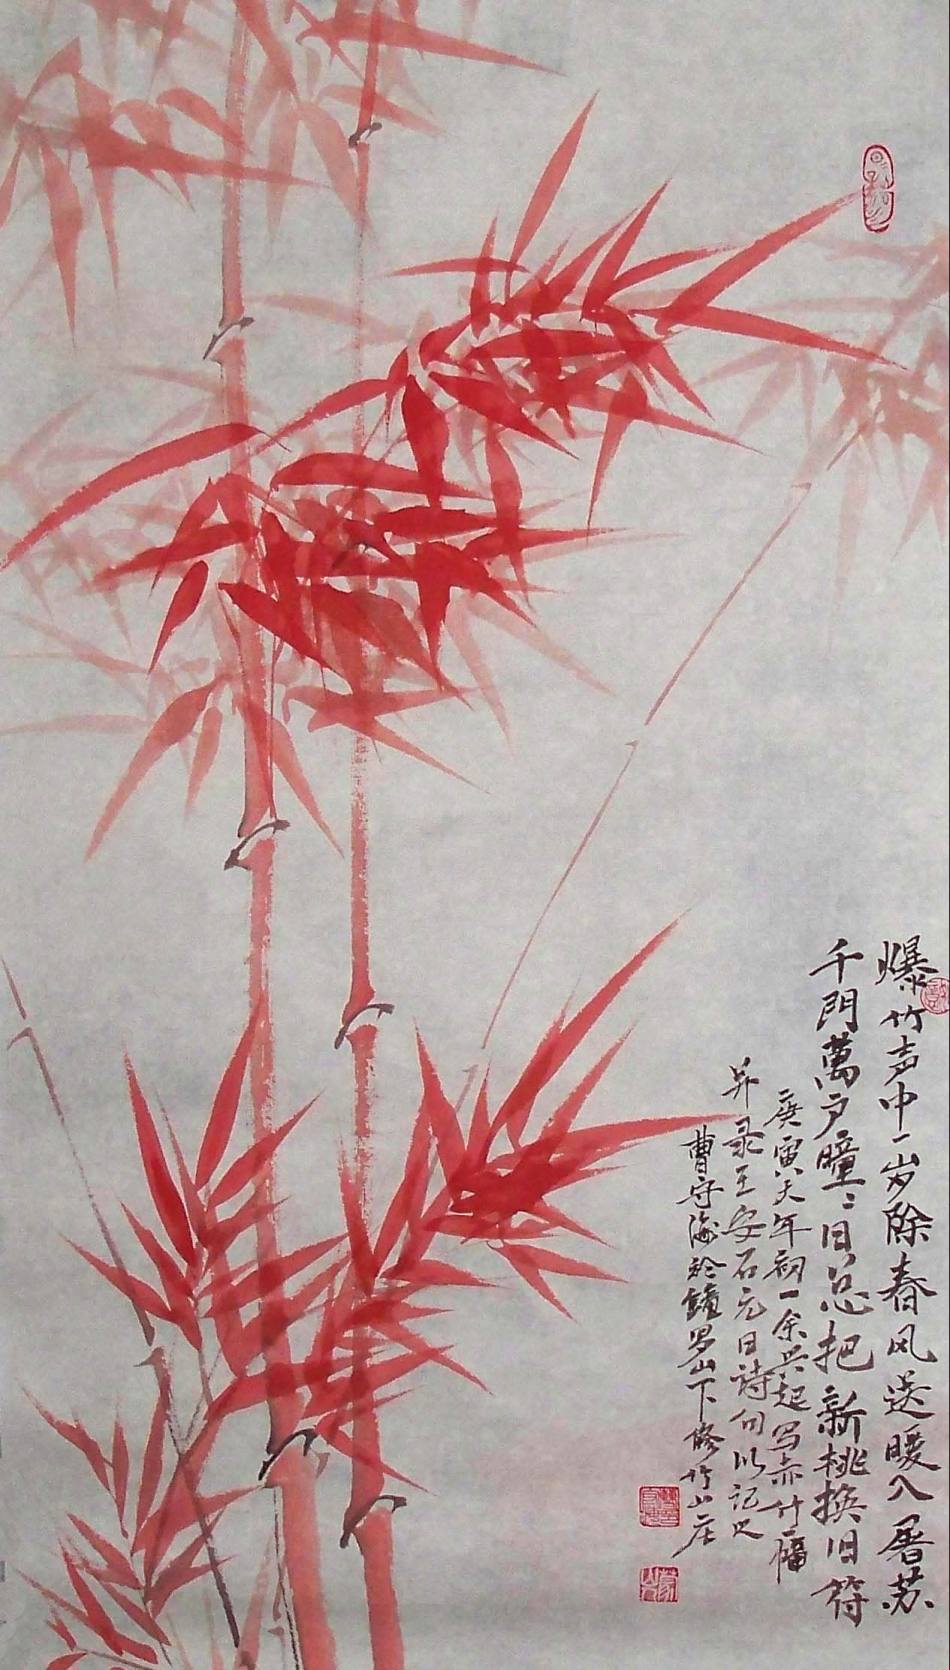 爆竹声中一岁除春风送暖入屠苏
千門萬户曈〻日总把新桃换旧符
庚寅大年初一余兴起写赤竹一幅
并录王安石元日诗句以记之
曹守海於鐘罗山下修竹山庄